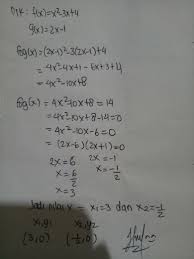 Dik: f(x)=x²-3x+4
g(x)=2x-1
fog(x)=(2x-1)²-3(2x-1)+4
=4x²-4x+1-6x+3+4
=4x²-10x+8
fog(x)=4x²-10x+8=14
=4x²-10x+8-14=0
=4x²-10x-6=0
=(2x-6)(2x+1)=0
2x=6 2x=-1
x=6/2 x=-1/2
x=3
Jadi nilai x = x₁=3 dan x₂=-1/2
x₁,y₁ x₂,y₂
(3,0) (-1/2,0)